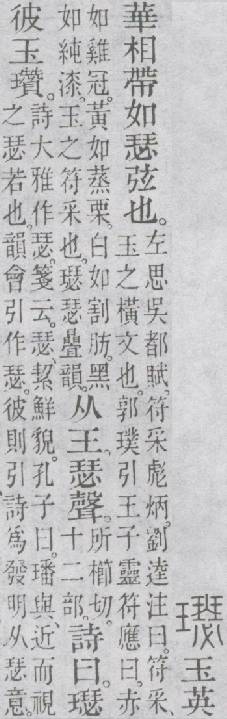 璱玉英
華相帶如瑟弦也。
左思吳都賦。符采彪炳。劉逵注曰。符采、
玉之橫文也。郭璞引王子靈符應曰。赤
如雞冠。黃如蒸栗。白如割肪。黑
如純漆。玉之符采也。璱瑟疊韻。
从王。瑟聲。
所櫛切。
十二部。
詩曰。璱
彼玉瓚。
詩大雅作瑟。箋云。瑟、絜鮮貌。孔子曰。璠與、近而視
之瑟若也。韻會引作瑟。彼則引詩爲發明从瑟意。